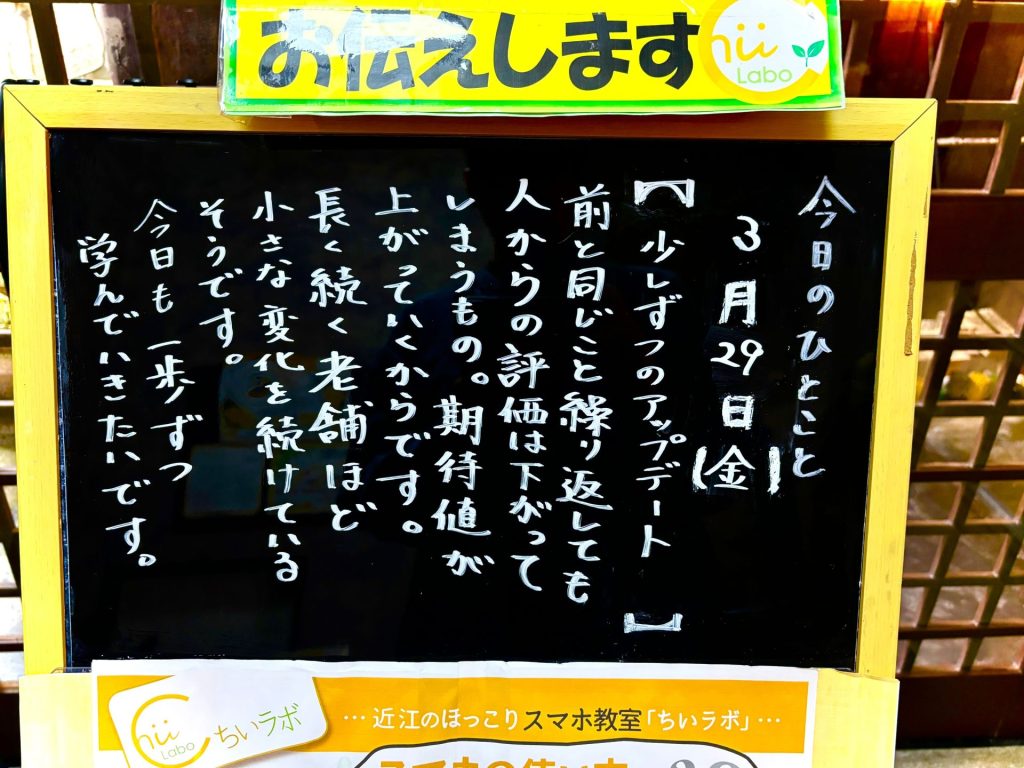 お伝えします
hii
Labo
今日のひとこと
3月29日(金)
【少しずつのアップデート】
前と同じこと繰り返しても
人からの評価は下がって
しまうもの。期待値が
上がっていくからです。
長く続く老舗ほど
小さな変化を続けている
そうです。
今日も一歩ずつ
学んでいきたいです。
Chii
Labo
ちいラボ
…近江のほっこりスマホ教室「ちいラボ」…